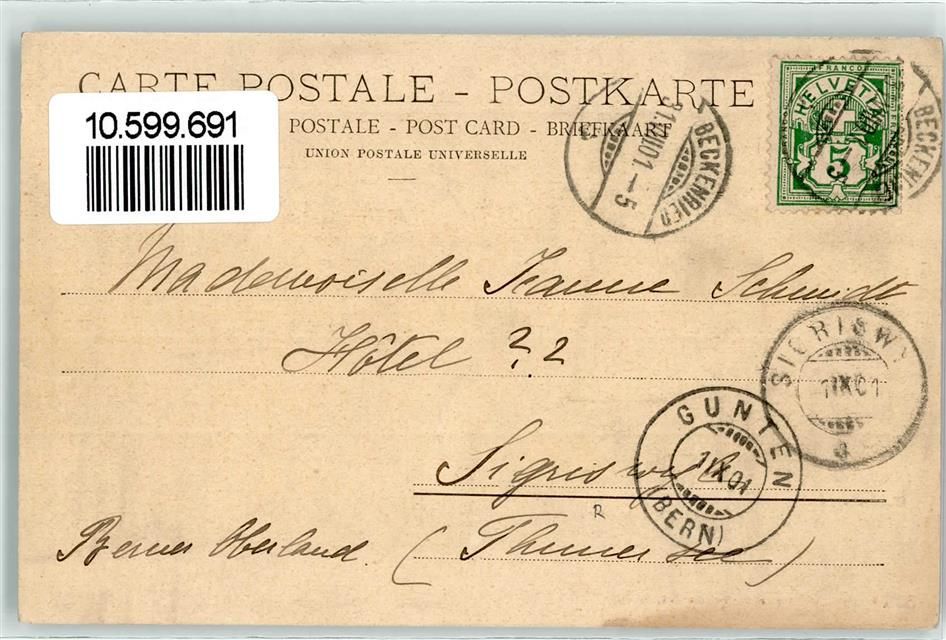 CARTE POSTALE - POSTKARTE
10.599.691
POSTALE - POST CARD - BRIEFKAART
UNION POSTALE UNIVERSELLE
BECKENRIED
31.VIII.01 - 5
FRANCO
HELVETIA
5
BECKENRIED
Mademoiselle Jeanne Schmidt
Hôtel ? ?
SIGRISWYL
1 IX 01
GUNTEN
1 IX 01
(BERN)
Sigriswyl
R
Berner Oberland. (Thuner See)